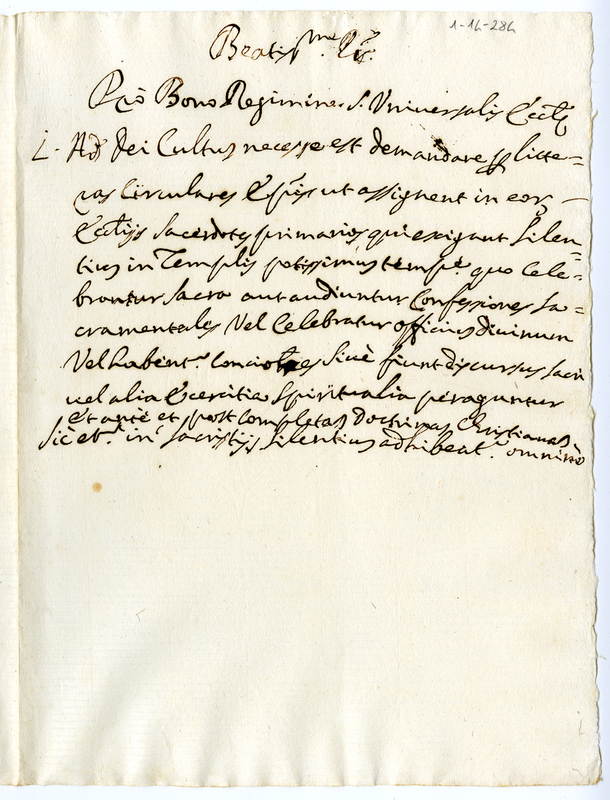 1-16-286
Beatiss.me P̃r.
Prõ Bono Regimine S. Universalis Eccłę
1. Ad Dei Cultus necesse est demandare p litte=
ras Circulares Ep̃is ut assignent in eorȝ
Eccłijs Sacerdotes primarios qui exigant Silen=
tius in Templis potissimus temp.e quo Cele=
brantur Sacra aut audiuntur Confessiones Sa=
cramentales Vel Celebratur officius divinum
Vel habent.r Conciones Sivè fiunt discursus sacri
vel alia Exercitia Spiritualia peraguntur
Et antè et post completas Doctrinas Christianas
Sic et.m in Sacristijs Silentius adhibeat.r omninò